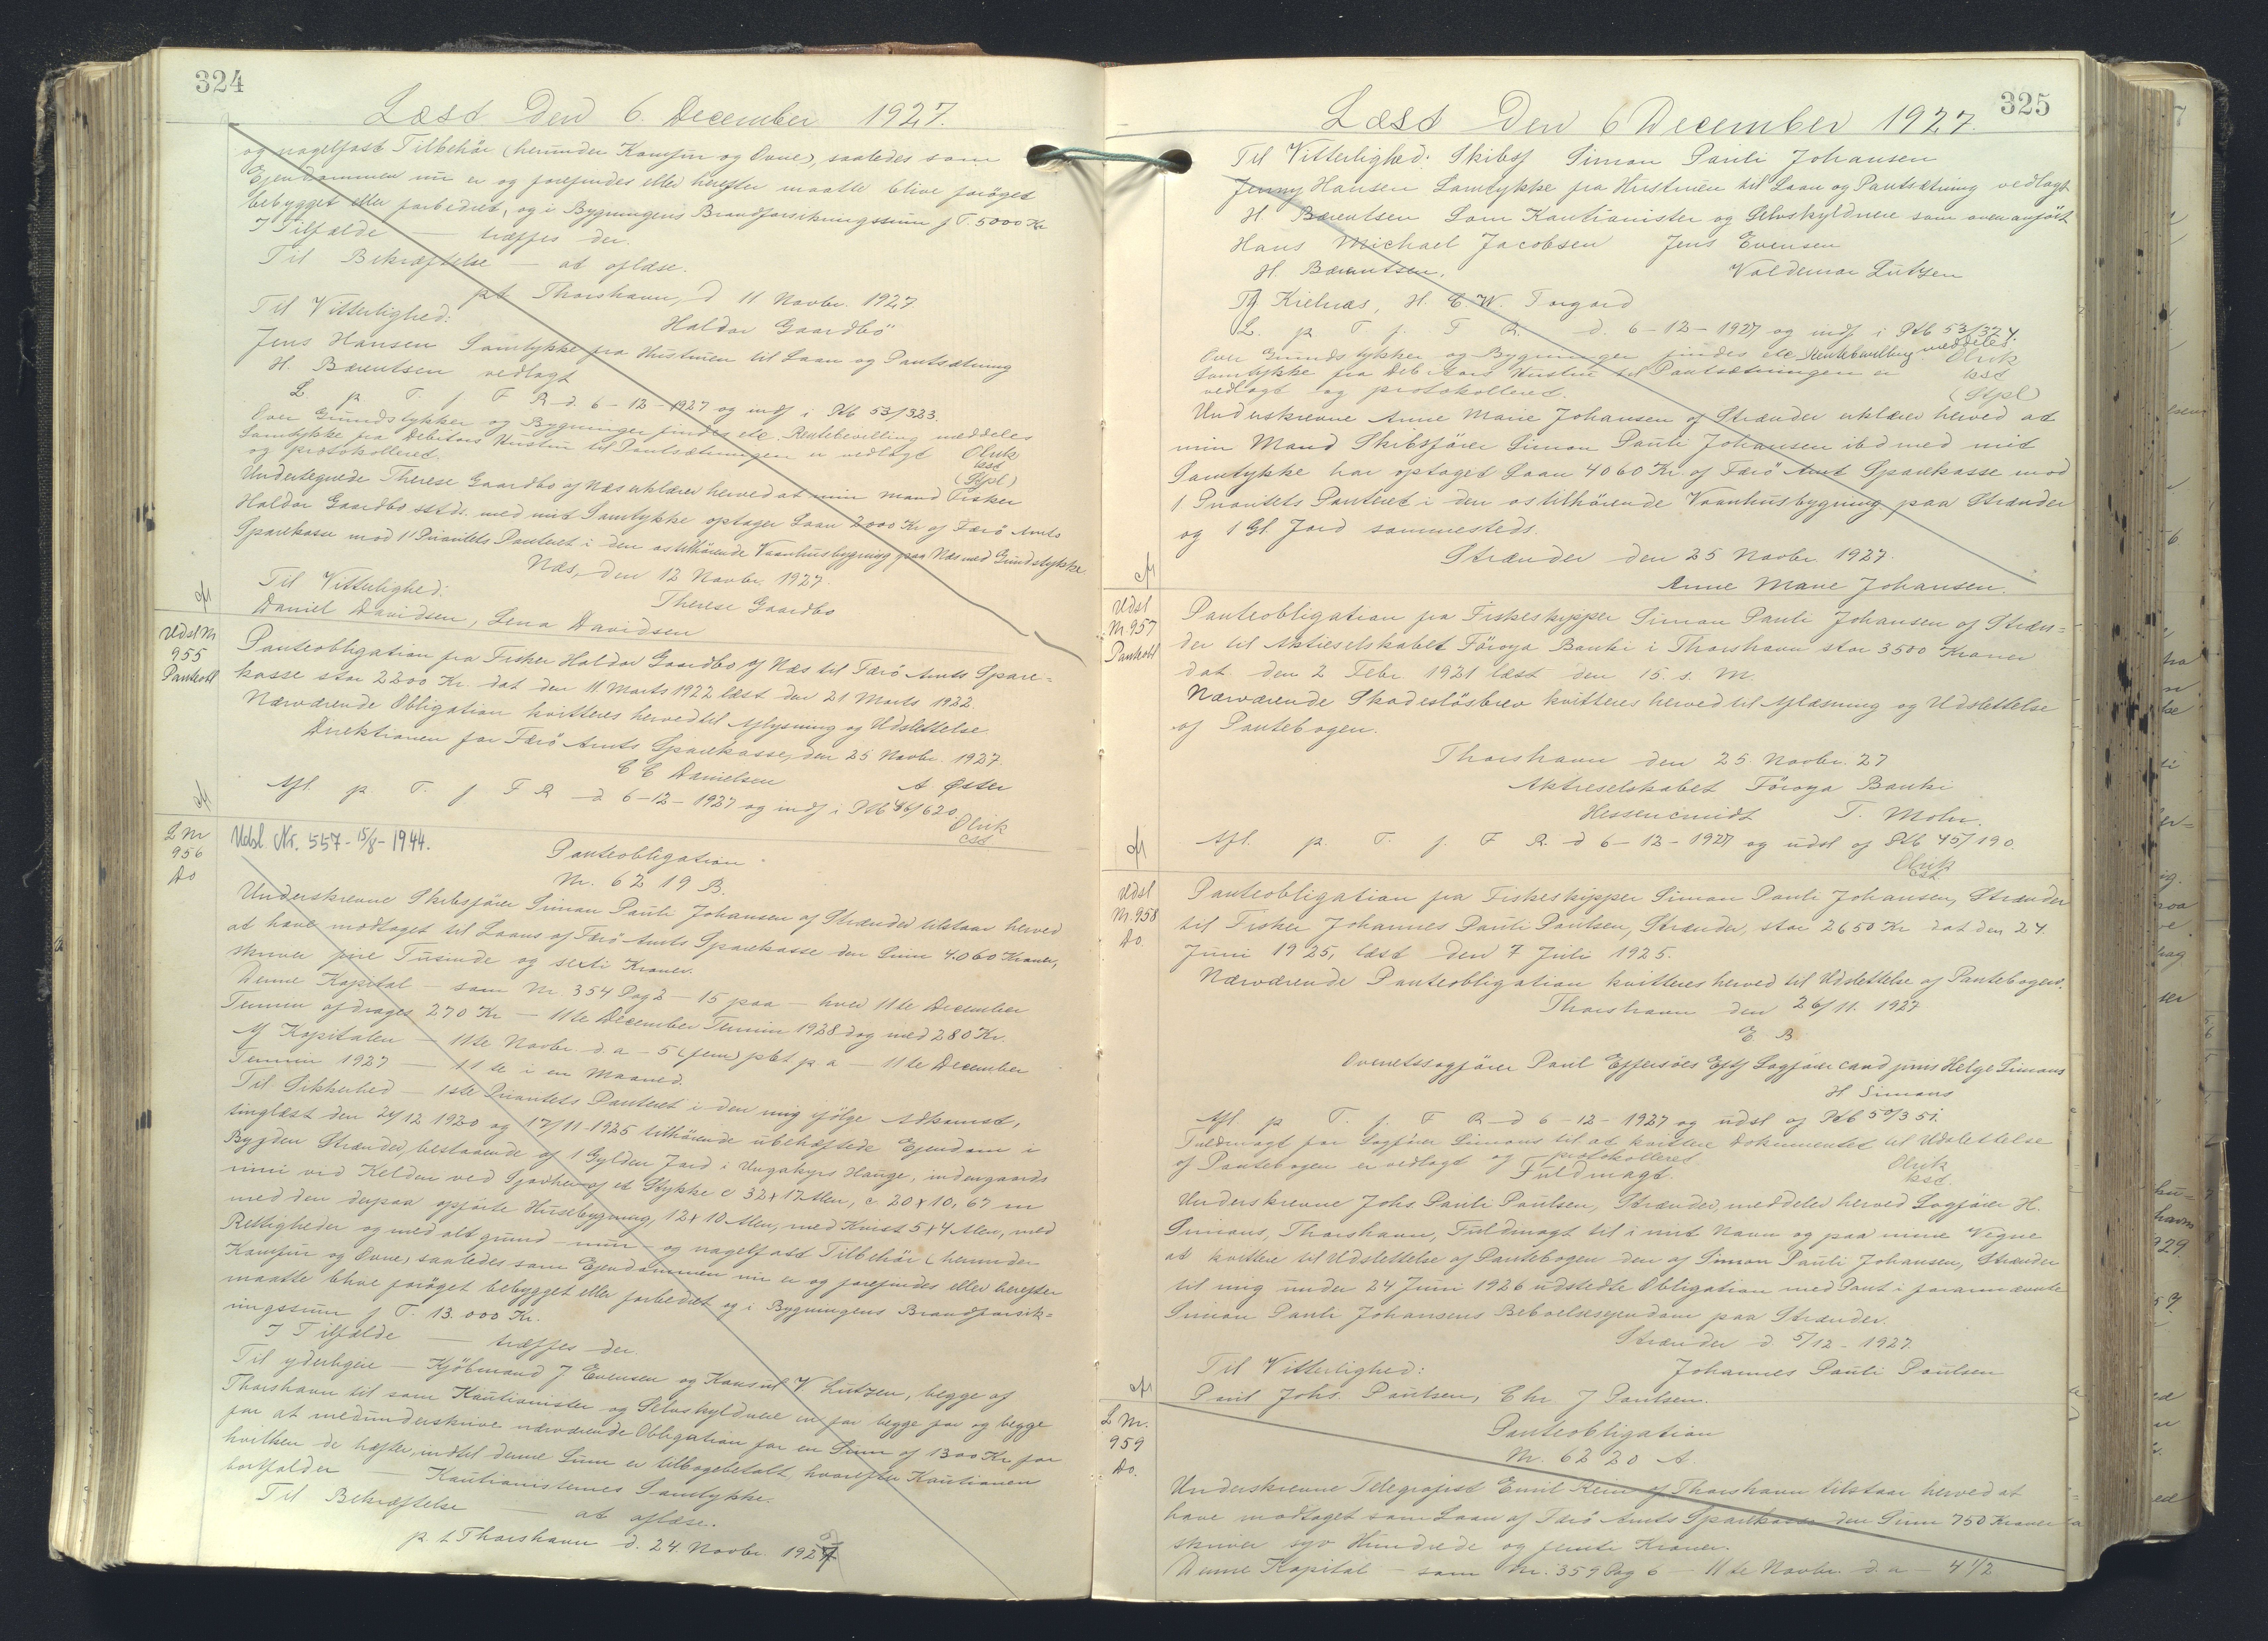 324
Læst Den 6. December 1927.
og nagelfast Tilbehör (herunder Komfur og Ovne), saaledes som
Ejendommen nu er og forefindes eller herefter maatte blive foröget
bebygget eller forbedret, og i Bygningens Brandforsikringssum f T. 5000 Kr
I Tilfælde — træffes der.
Til Bekræftelse — at aflæse.
pt Thorshavn, d 11 Novbr. 1927
Til Vitterlighed:
Haldor Gaardbö
Jens Hansen Samtykke fra Hustruen til Laan og Pantsætning
H. Bærentsen vedlagt
L p T. f. F R d. 6-12-1927 og indf i Ptb 53/323.
Over Grundstykker og Bygninger findes etc. Rentebevilling meddeles
Samtykke fra Debitors Hustru til Pantsætningen er vedlagt
og protokolleret.
Olrik
kst
(Stpl)
Undertegnede Therese Gaardbo af Næs erklærer herved at min Mand Fisker
Haldor Gaardbo sstds. med mit Samtykke optager Laan 2000 Kr af Færö Amts
Sparekasse mod 1' Prioritets Panteret i den os tilhörende Vaanhusbygning paa Næs med Grundstykke
Næs, den 12 Novbr. 1927.
Til Vitterlighed:
Therese Gaardbo
Daniel Davidsen, Lena Davidsen
Udsl Nr
955
Panteobl
Panteobligation fra Fisker Haldor Gaardbo af Næs til Færö Amts Spare=
kasse stor 2200 Kr. dat den 11 Marts 1922 læst den 21 Marts 1922
Nærværende Obligation kvitteres herved til Aflysning og Udslettelse.
Direktionen for Færö Amts Sparekasse, den 25 Novbr. 1927.
E E Danielsen A Øster
Afl. p. T. f F R d 6-12-1927 og indf i Ptb 46/620.
Olrik
cst
L Nr
956
Do
Udsl. Nr. 557 - 15/8 - 1944.
Panteobligation
Nr. 6219 B.
Underskrevne Skibsförer Simon Pauli Johansen af Strænder tilstaar herved
at have modtaget til Laans af Færö Amts Sparekasse den Sum 4.060 Kroner,
skriver fire Tusinde og sexti Kroner.
Denne Kapital — som Nr. 354 Pag 2 — 15 paa — hver 11te December
Termin afdrages 270 Kr — 11te December Termin 1928 dog med 280 Kr.
Af Kapitalen — 11te Novbr. d. a — 5 (fem) pCt p a — 11te December
Termin 1927 — 11te i en Maaned.
Til Sikkerhed — 1ste Prioritets Panteret i den mig ifölge Adkomst,
tinglæst den 21/12 1920 og 17/11-1925 tilhörende ubehæftede Ejendom i
Bygden Strænder, bestaaende af 1 Gylden Jord i Ungakyrs Hauge, indengaards
med den derpaa opförte Husebygning, 12 x 10 Alen, med Kvist 5 x 4 Alen, med
Rettigheder og med alt grund- mur- og nagelfast Tilbehör (herunder
Komfur og Ovne) saaledes som Ejendommen nu er og forefindes eller herefter
maatte blive foröget bebygget eller forbedret og i Bygningens Brandforsik=
ringssum f T. 13.000 Kr.
I Tilfælde — træffes der.
Til yderligere — Kjöbmand J Evensen og Konsul V. Lützen, begge af
Thorshavn til som Kautionister og Selvskyldnere en for begge for og begge
for at medunderskrive nærværende Obligation for en Sum af 1300 Kr for
hvilken de hæfter, indtil denne Sum er tilbagebetalt, hvorefter Kautionen
bortfalder — Kautionisternes Samtykke.
Til Bekræftelse — at aflæse.
p t Thorshavn d. 24. Novbr. 1927
325
Læst Den 6 December 1927.
Til Vitterlighed: Skibsf Simon Pauli Johansen
Jenny Hansen Samtykke fra Hustruen til Laan og Pantsætning vedlagt
H. Bærentsen Som Kautionister og Selvskyldnere som ovenanfört
Hans Michael Jacobsen Jens Evensen
H. Bærentsen, Valdemar Lützen
H. C. W. Torgard
L. p T f. F R. d. 6-12-1927 og indf i Ptb 53/324.
Over Grundstykker og Bygninger findes etc. Rentebevilling meddeles
Samtykke fra Debitors Hustru til Pantsætningen er
vedlagt og protokolleret.
Olrik
kst
(Stpl)
Underskrevne Anne Marie Johansen af Strænder erklærer herved at
min Mand Skibsförer Simon Pauli Johansen ibd med mit
Samtykke har optaget Laan 4060 Kr af Færö Amt Sparekasse mod
1 Prioritets Panteret i den os tilhörende Vaanhusbygning paa Strænder
og 1 Gl. Jord sammesteds.
Strænder den 25 Novbr 1927.
Anne Marie Johansen.
Udsl
Nr. 957
Panteobl
Panteobligation fra Fiskeskipper Simon Pauli Johansen af Stræn=
der til Aktieselskabet Föroya Banki i Thorshavn stor 3500 Kroner
dat den 2 Febr. 1921 læst den 15. s. M.
Nærværende Skadeslösbrev kvitteres herved til Aflæsning og Udslettelse
af Pantebogen.
Thorshavn den 25. Novbr. 27
Aktieselskabet Föroya Banki
T. Mohr.
Afl. p. T. f. F R. d 6-12-1927 og udsl af Ptb 45/190.
Olrik
cst
Udsl
Nr. 958
Do
Panteobligation fra Fiskeskipper Simon Pauli Johansen, Strænder
til Fisker Johannes Pauli Poulsen, Strænder, stor 2650 Kr dat den 24.
Juni 1925, læst den 7 Juli 1925.
Nærværende Panteobligation kvitteres herved til Udslettelse af Pantebogen.
Thorshavn den 26/11. 1927
E. B.
Overretssagförer Poul Effersöes Eftf Sagförer cand juris Helge Simons
H Simons
Afl p T. f. F R d 6-12-1927 og udsl af Ptb 50/351.
Fuldmagt for Sagförer Simons til at kvittere Dokumentet til Udslettelse
af Pantebogen er vedlagt og protokolleret
Olrik
kst.
Fuldmagt.
Underskrevne Johs. Pauli Poulsen, Strænder, meddeler herved Sagförer H.
Simons, Thorshavn, Fuldmagt til i mit Navn og paa mine Vegne
at kvittere til Udslettelse af Pantebogen den af Simon Pauli Johansen, Strænder
til mig under 24 Juni 1926 udstedte Obligation med Pant i forannævnte
Simon Pauli Johansens Beboelsesejendom paa Strænder.
Strænder d 5/12 - 1927.
Til Vitterlighed:
Johannes Pauli Poulsen
Poul Johs. Poulsen, Chr J Poulsen.
L Nr.
959
Do.
Panteobligation
Nr. 6220 A.
Underskrevne Telegrafist Emil Rein af Thorshavn tilstaar herved at
have modtaget som Laan af Færö Amts Sparekasse den Sum 750 Kroner
skriver syv Hundrede og femti Kroner.
Denne Kapital — som Nr. 359 Pag 6 — 11te Novbr. d. a — 4 1/2